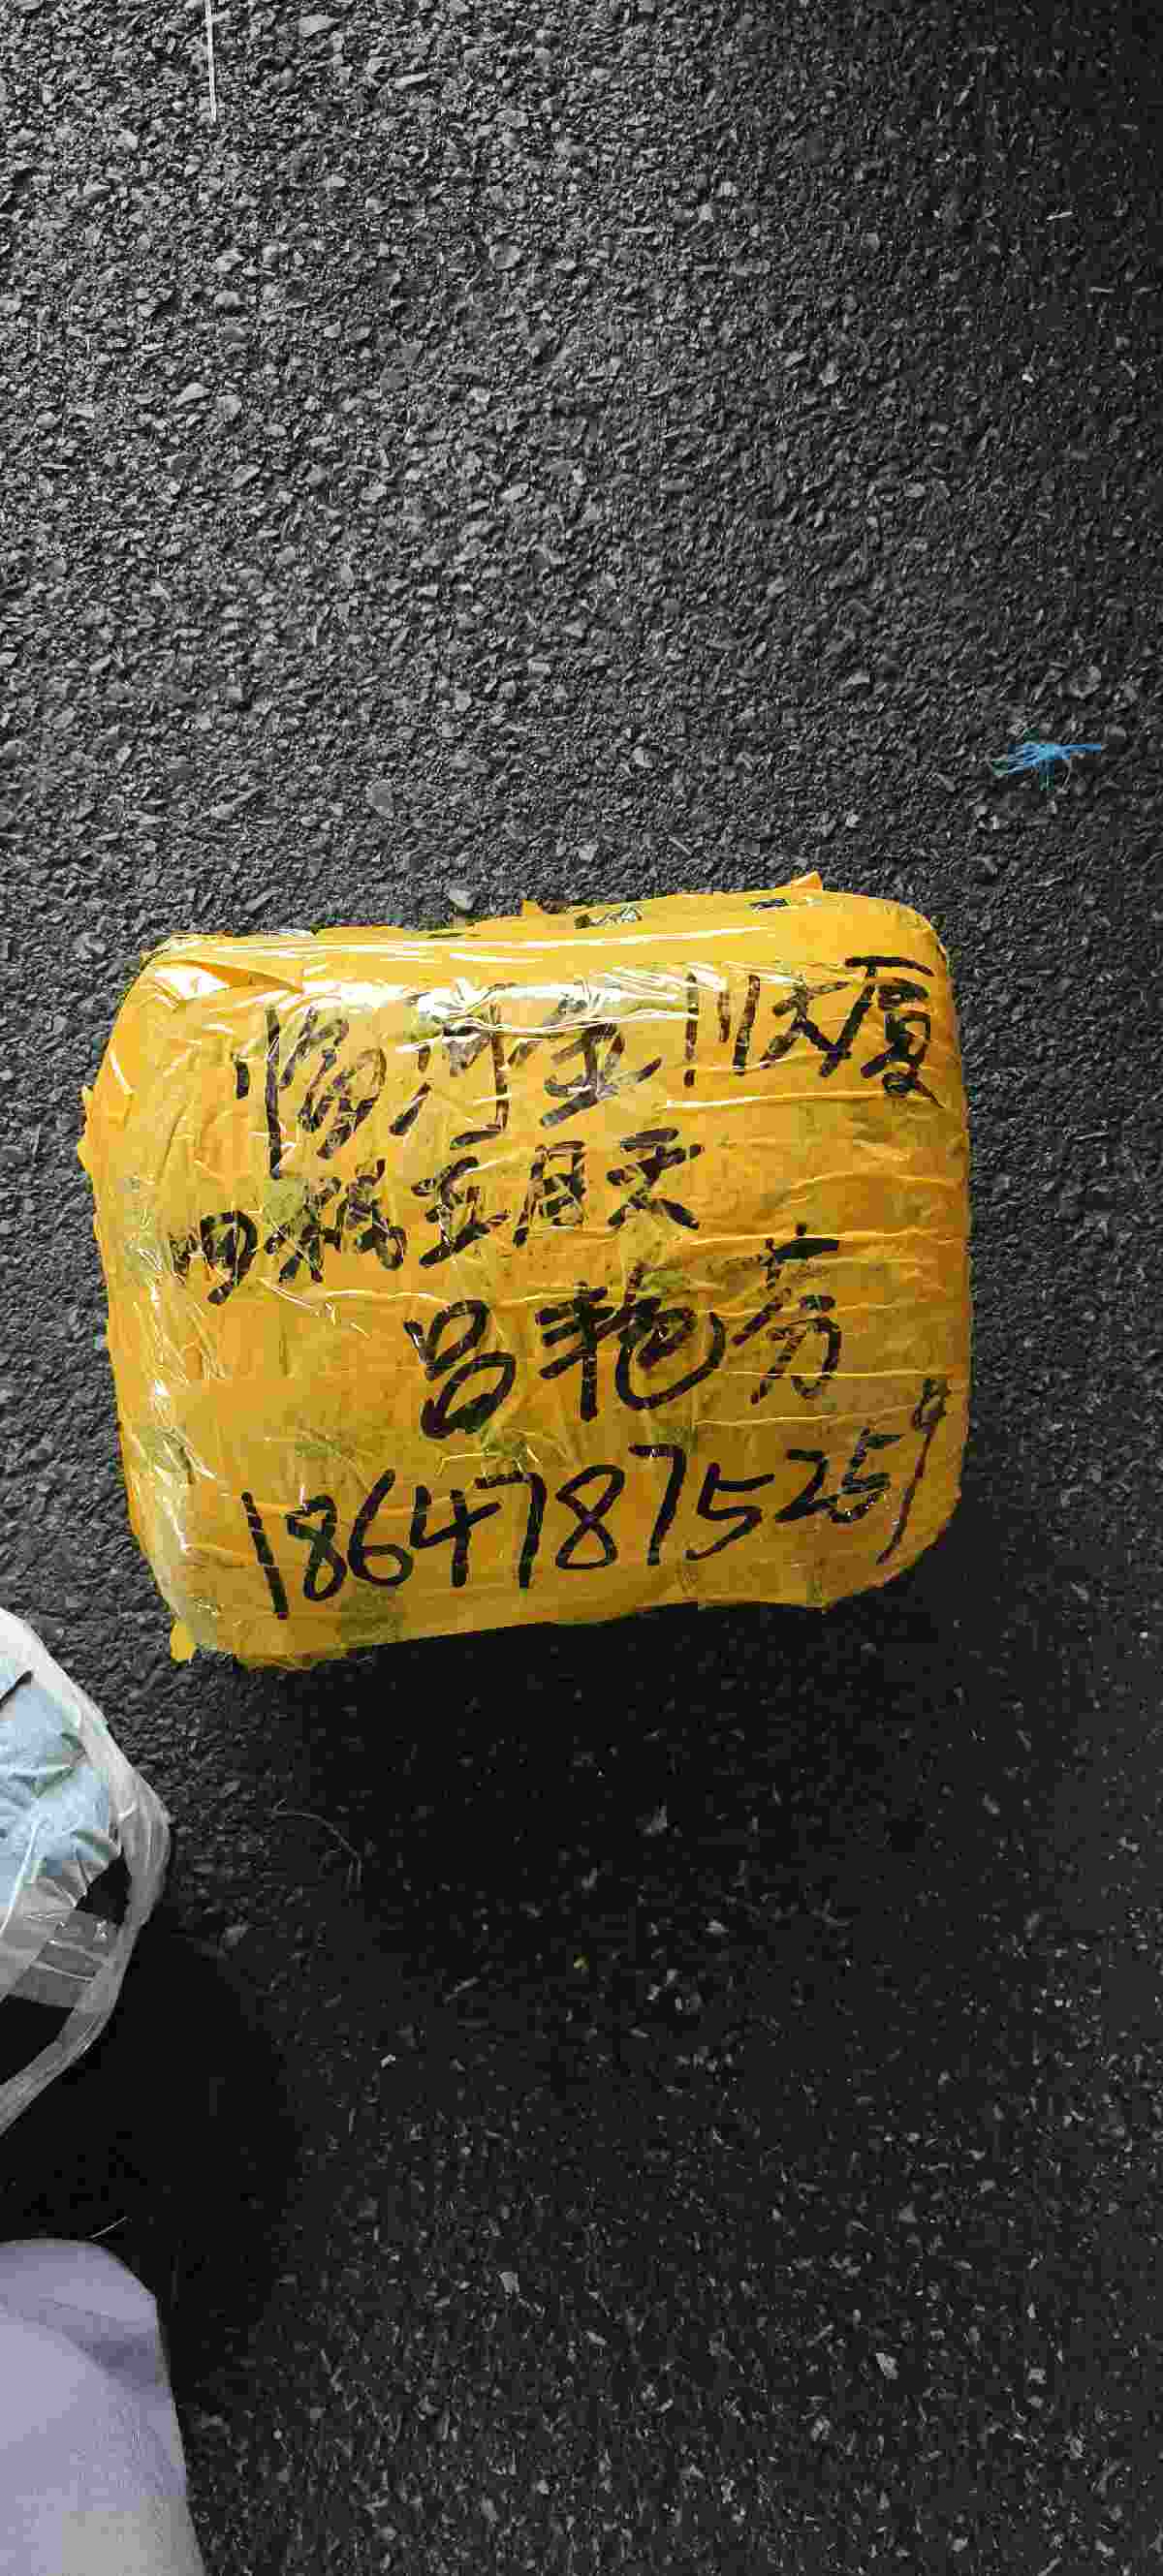 临河金川大厦
五月天
吕艳芬
18647875259